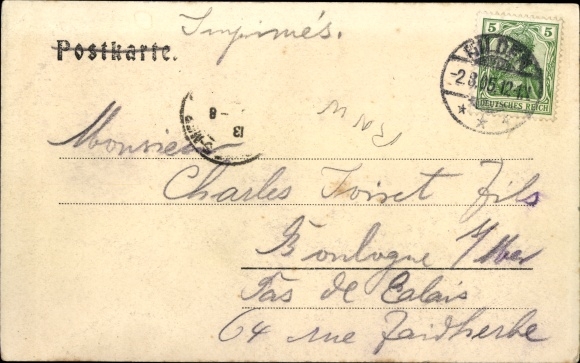 Imprimés.
Postkarte.
5 5
DEUTSCHES REICH
-2.8.05.12-1
13
-8
Monsieur
Charles Foiret fils
Boulogne s/Mer
Pas de Calais
64 rue Faidherbe